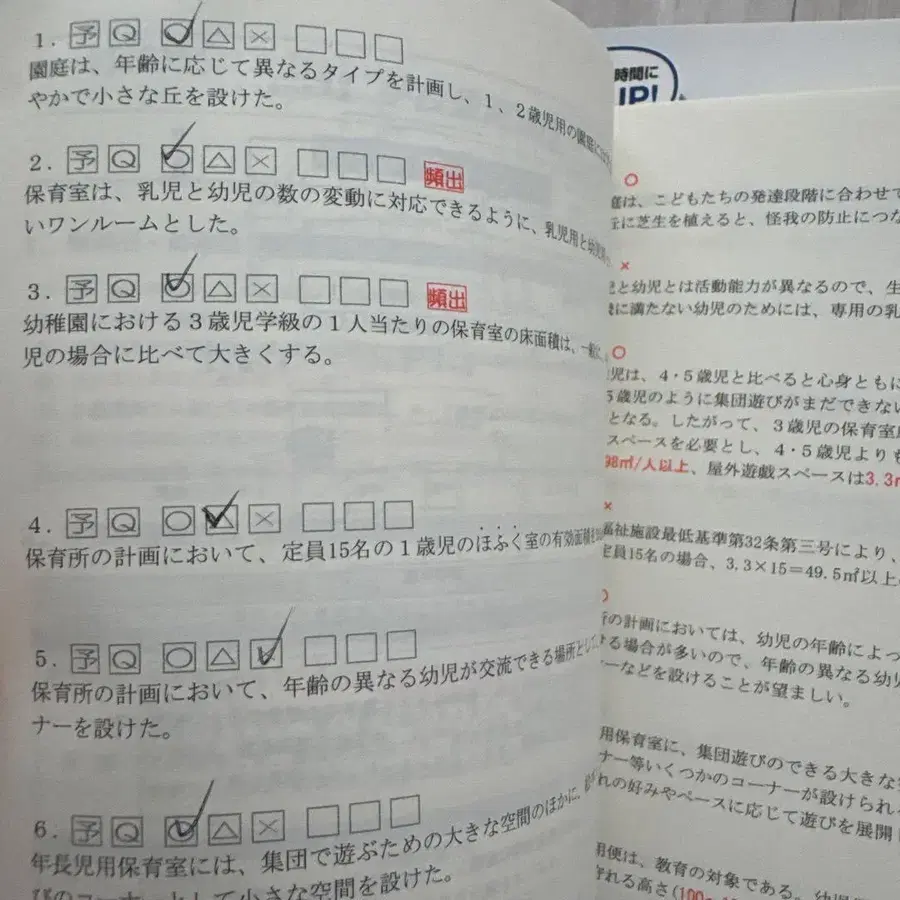 1. 予 Q ○ △ ×
園庭は、年齢に応じて異なるタイプを計画し、1、2歳児用の園庭に
やかで小さな丘を設けた。
2. 予 Q ○ △ × 頻出
保育室は、乳児と幼児の数の変動に対応できるように、乳児用と幼児
いワンルームとした。
3. 予 Q ○ △ × 頻出
幼稚園における3歳児学級の1人当たりの保育室の床面積は、一般に、
児の場合に比べて大きくする。
4. 予 Q ○ △ ×
保育所の計画において、定員15名の1歳児のほふく室の有効面積を
5. 予 Q ○ △ ×
保育所の計画において、年齢の異なる幼児が交流できる場所として、
ナーを設けた。
6. 予 Q ○ △ ×
年長児用保育室には、集団で遊ぶための大きな空間のほかに、
びのコーナーとして小さな空間を設けた。
時間に
UP!
○
庭は、こどもたちの発達段階に合わせて
丘に芝生を植えると、怪我の防止につな
×
児と幼児とは活動能力が異なるので、生
歳に満たない幼児のためには、専用の乳
○
児は、4・5歳児と比べると心身ともに
5歳児のように集団遊びがまだできない
となる。したがって、3歳児の保育室
スペースを必要とし、4・5歳児よりも
98㎡/人以上、屋外遊戯スペースは3.3㎡
×
福祉施設最低基準第32条第三号により、
定員15名の場合、3.3×15＝49.5㎡以上
○
所の計画においては、幼児の年齢によっ
ける場合が多いので、年齢の異なる幼児
ナーなどを設けることが望ましい。
用保育室に、集団遊びのできる大きな
ナー等いくつかのコーナーが設けられ
れの好みやペースに応じて遊びを展開
用便は、教育の対象である。幼児
守れる高さ(100